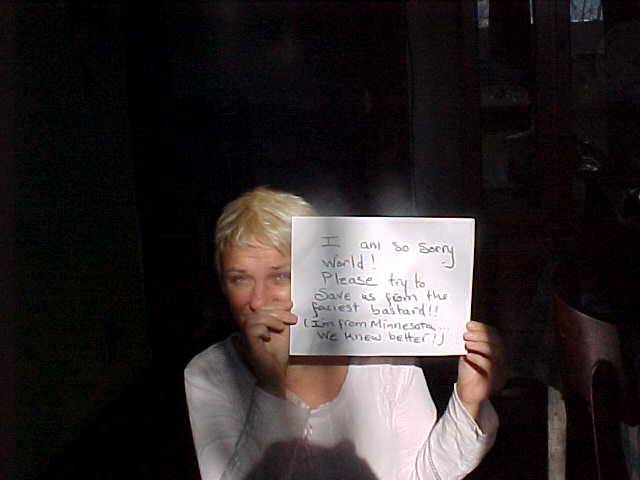 I am so sorry
World!
Please try to
Save us from the
faciest bastard!!
(I'm from Minnesota...
We knew better!)